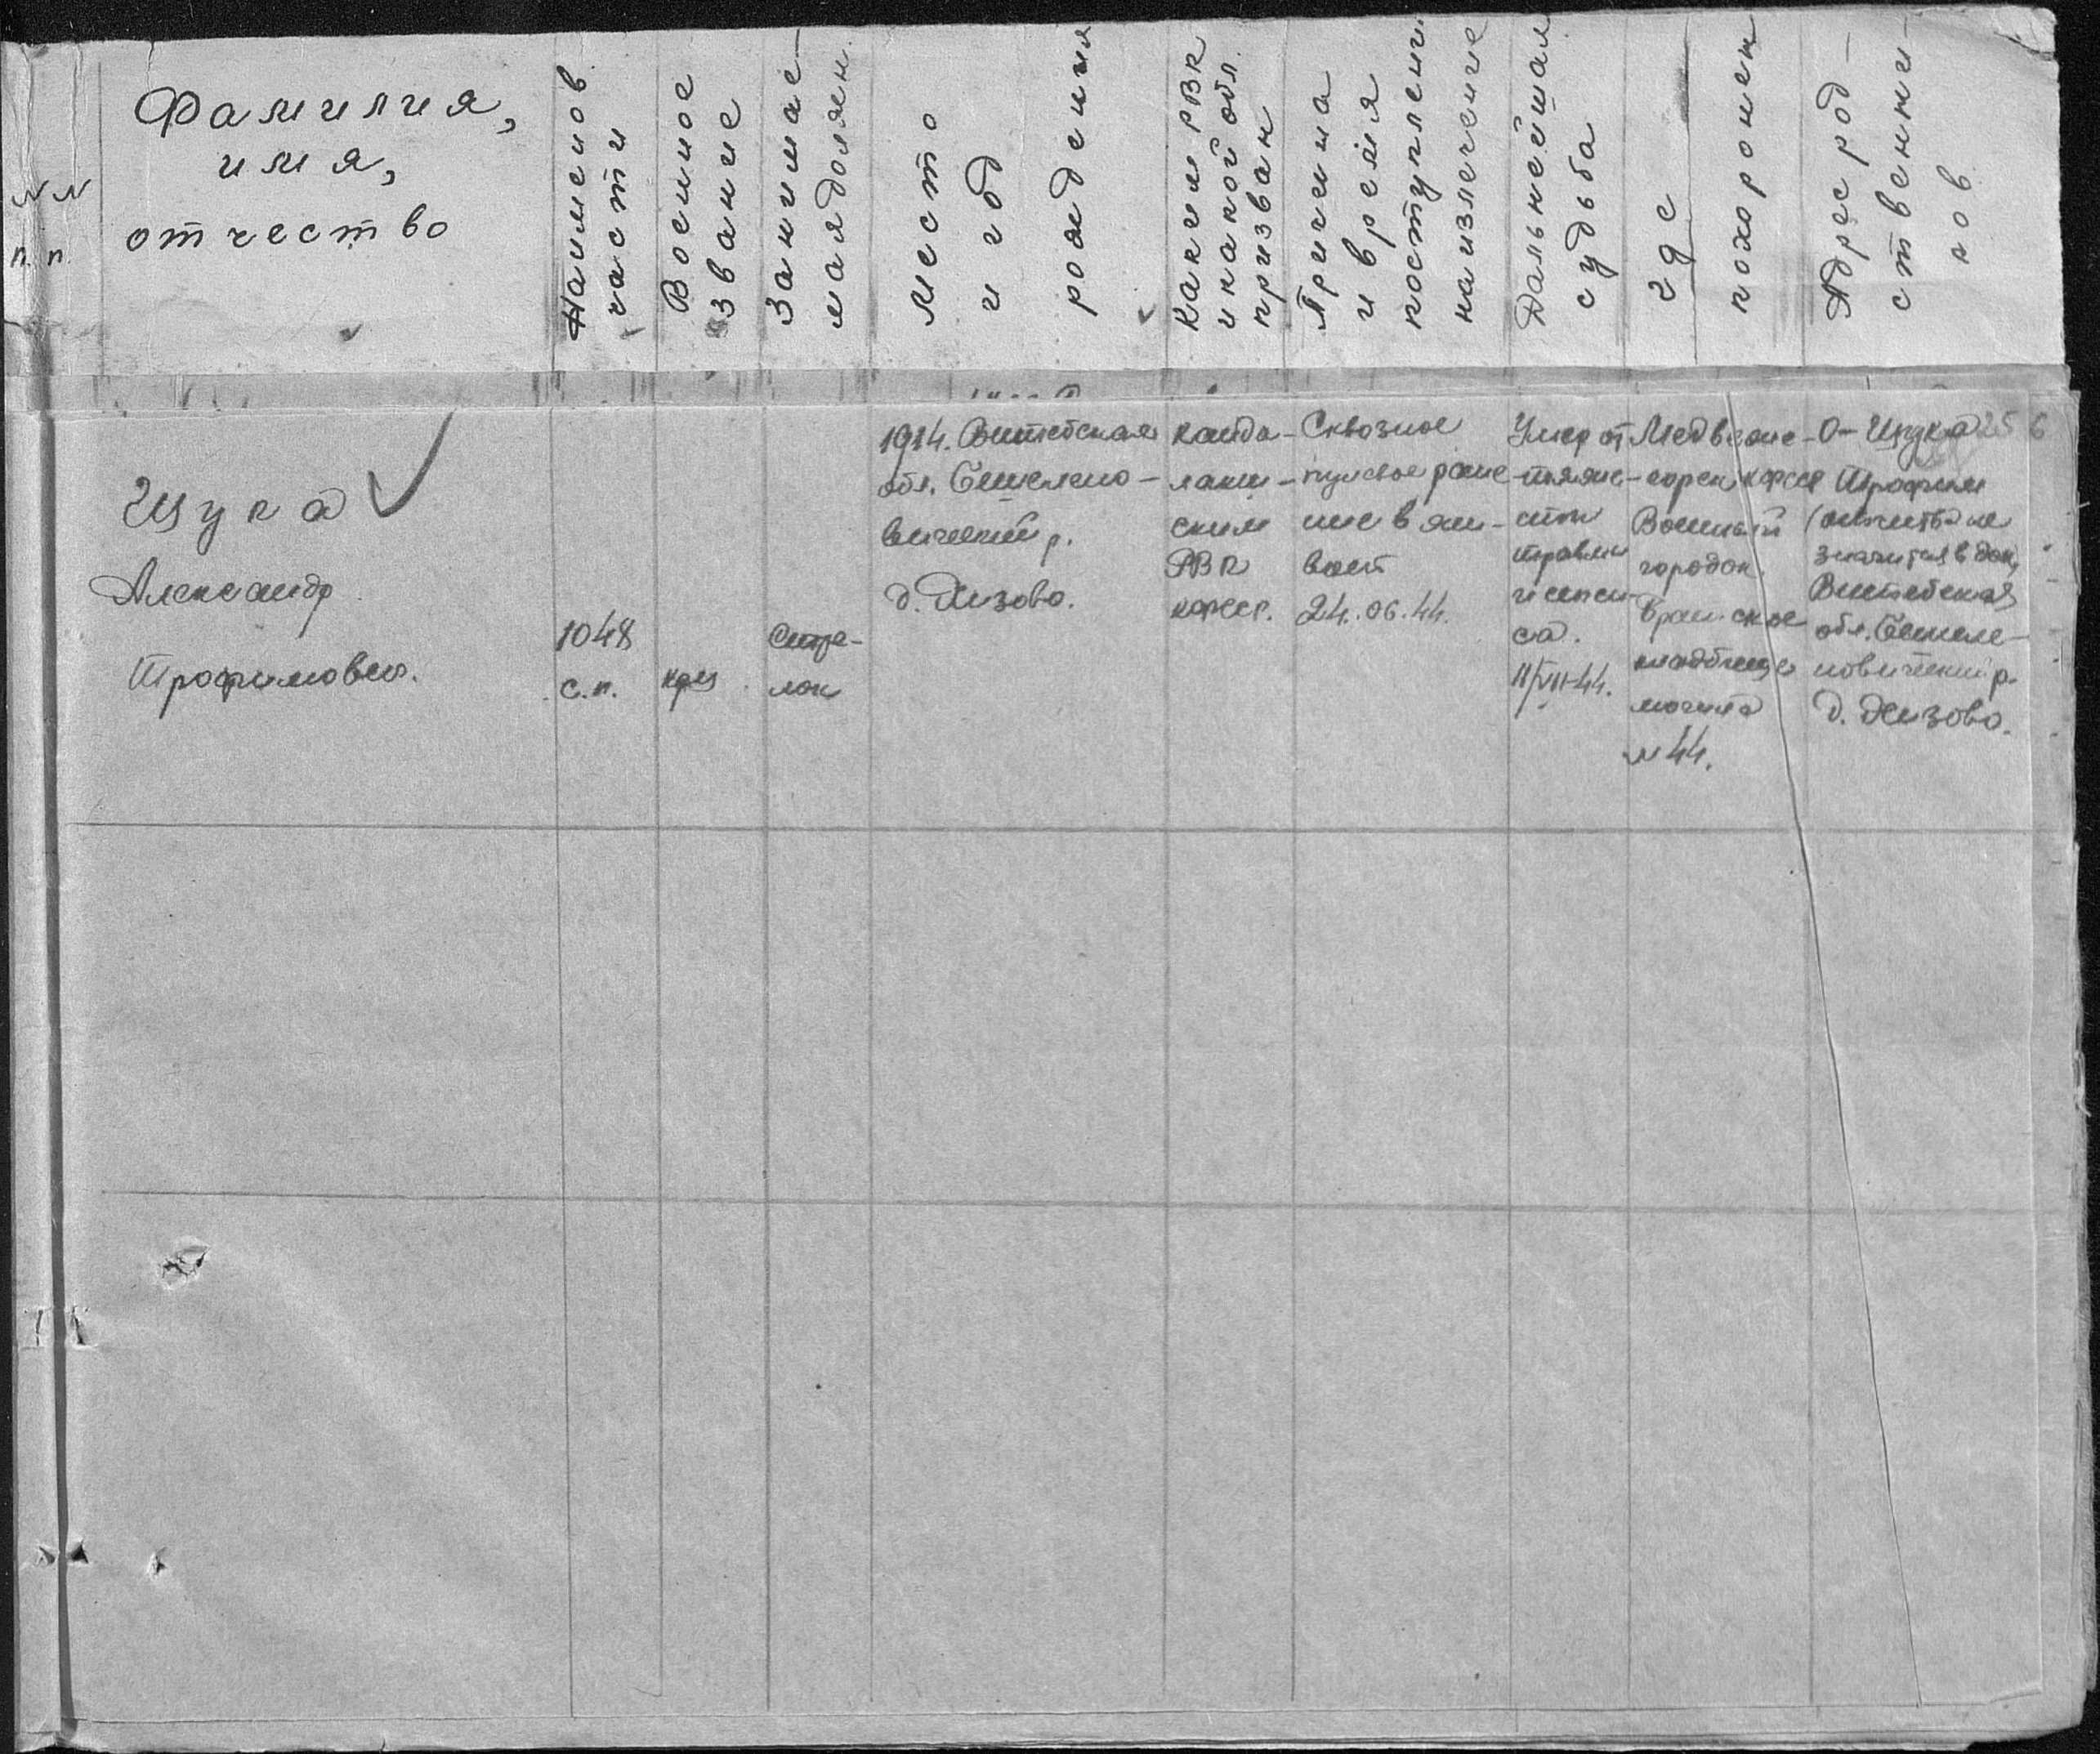 NN
п.п.
Фамилия,
имя,
отчество
Наименов
части
Военное
звание
Занимае-
мая должн.
Место
и год
рождения
Каким РВК
и какой обл.
призван
Причина
и время
поступлени
на излечение
Дальнейшая
судьба
где
похоронен
Адрес род-
ственни-
ков
Щука
Александр
Трофимович.
1048
с.п.
кр-ц
Стре-
лок
1914. Витебская
обл. Бешенко-
вический р.
д. Низово.
Канда-
лакш-
ским
РВК
кфсср.
Сквозное
пулевое ране-
ние в жи-
вот
24.06.44.
Умер от
тяже-
лой
травмы
и сепси-
са.
11/VII-44.
Медвеже-
горск кфсср
Военный
городок.
Братское
кладбище
могила
№ 44.
О- Щука
Трофим
(отчество не
значится в док.
Витебская
обл. Бешен-
ковический р.
д. Низово.
256